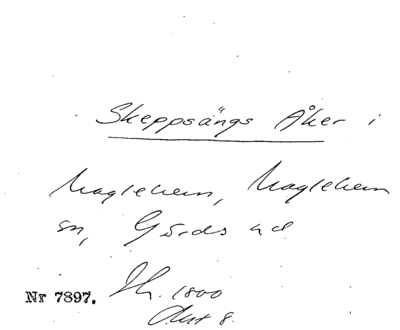 Skeppsängs Åker i
Maglehem, Maglehem
sn, Gärds hd
Nr 7897. Sk. 1800
Akt 8.